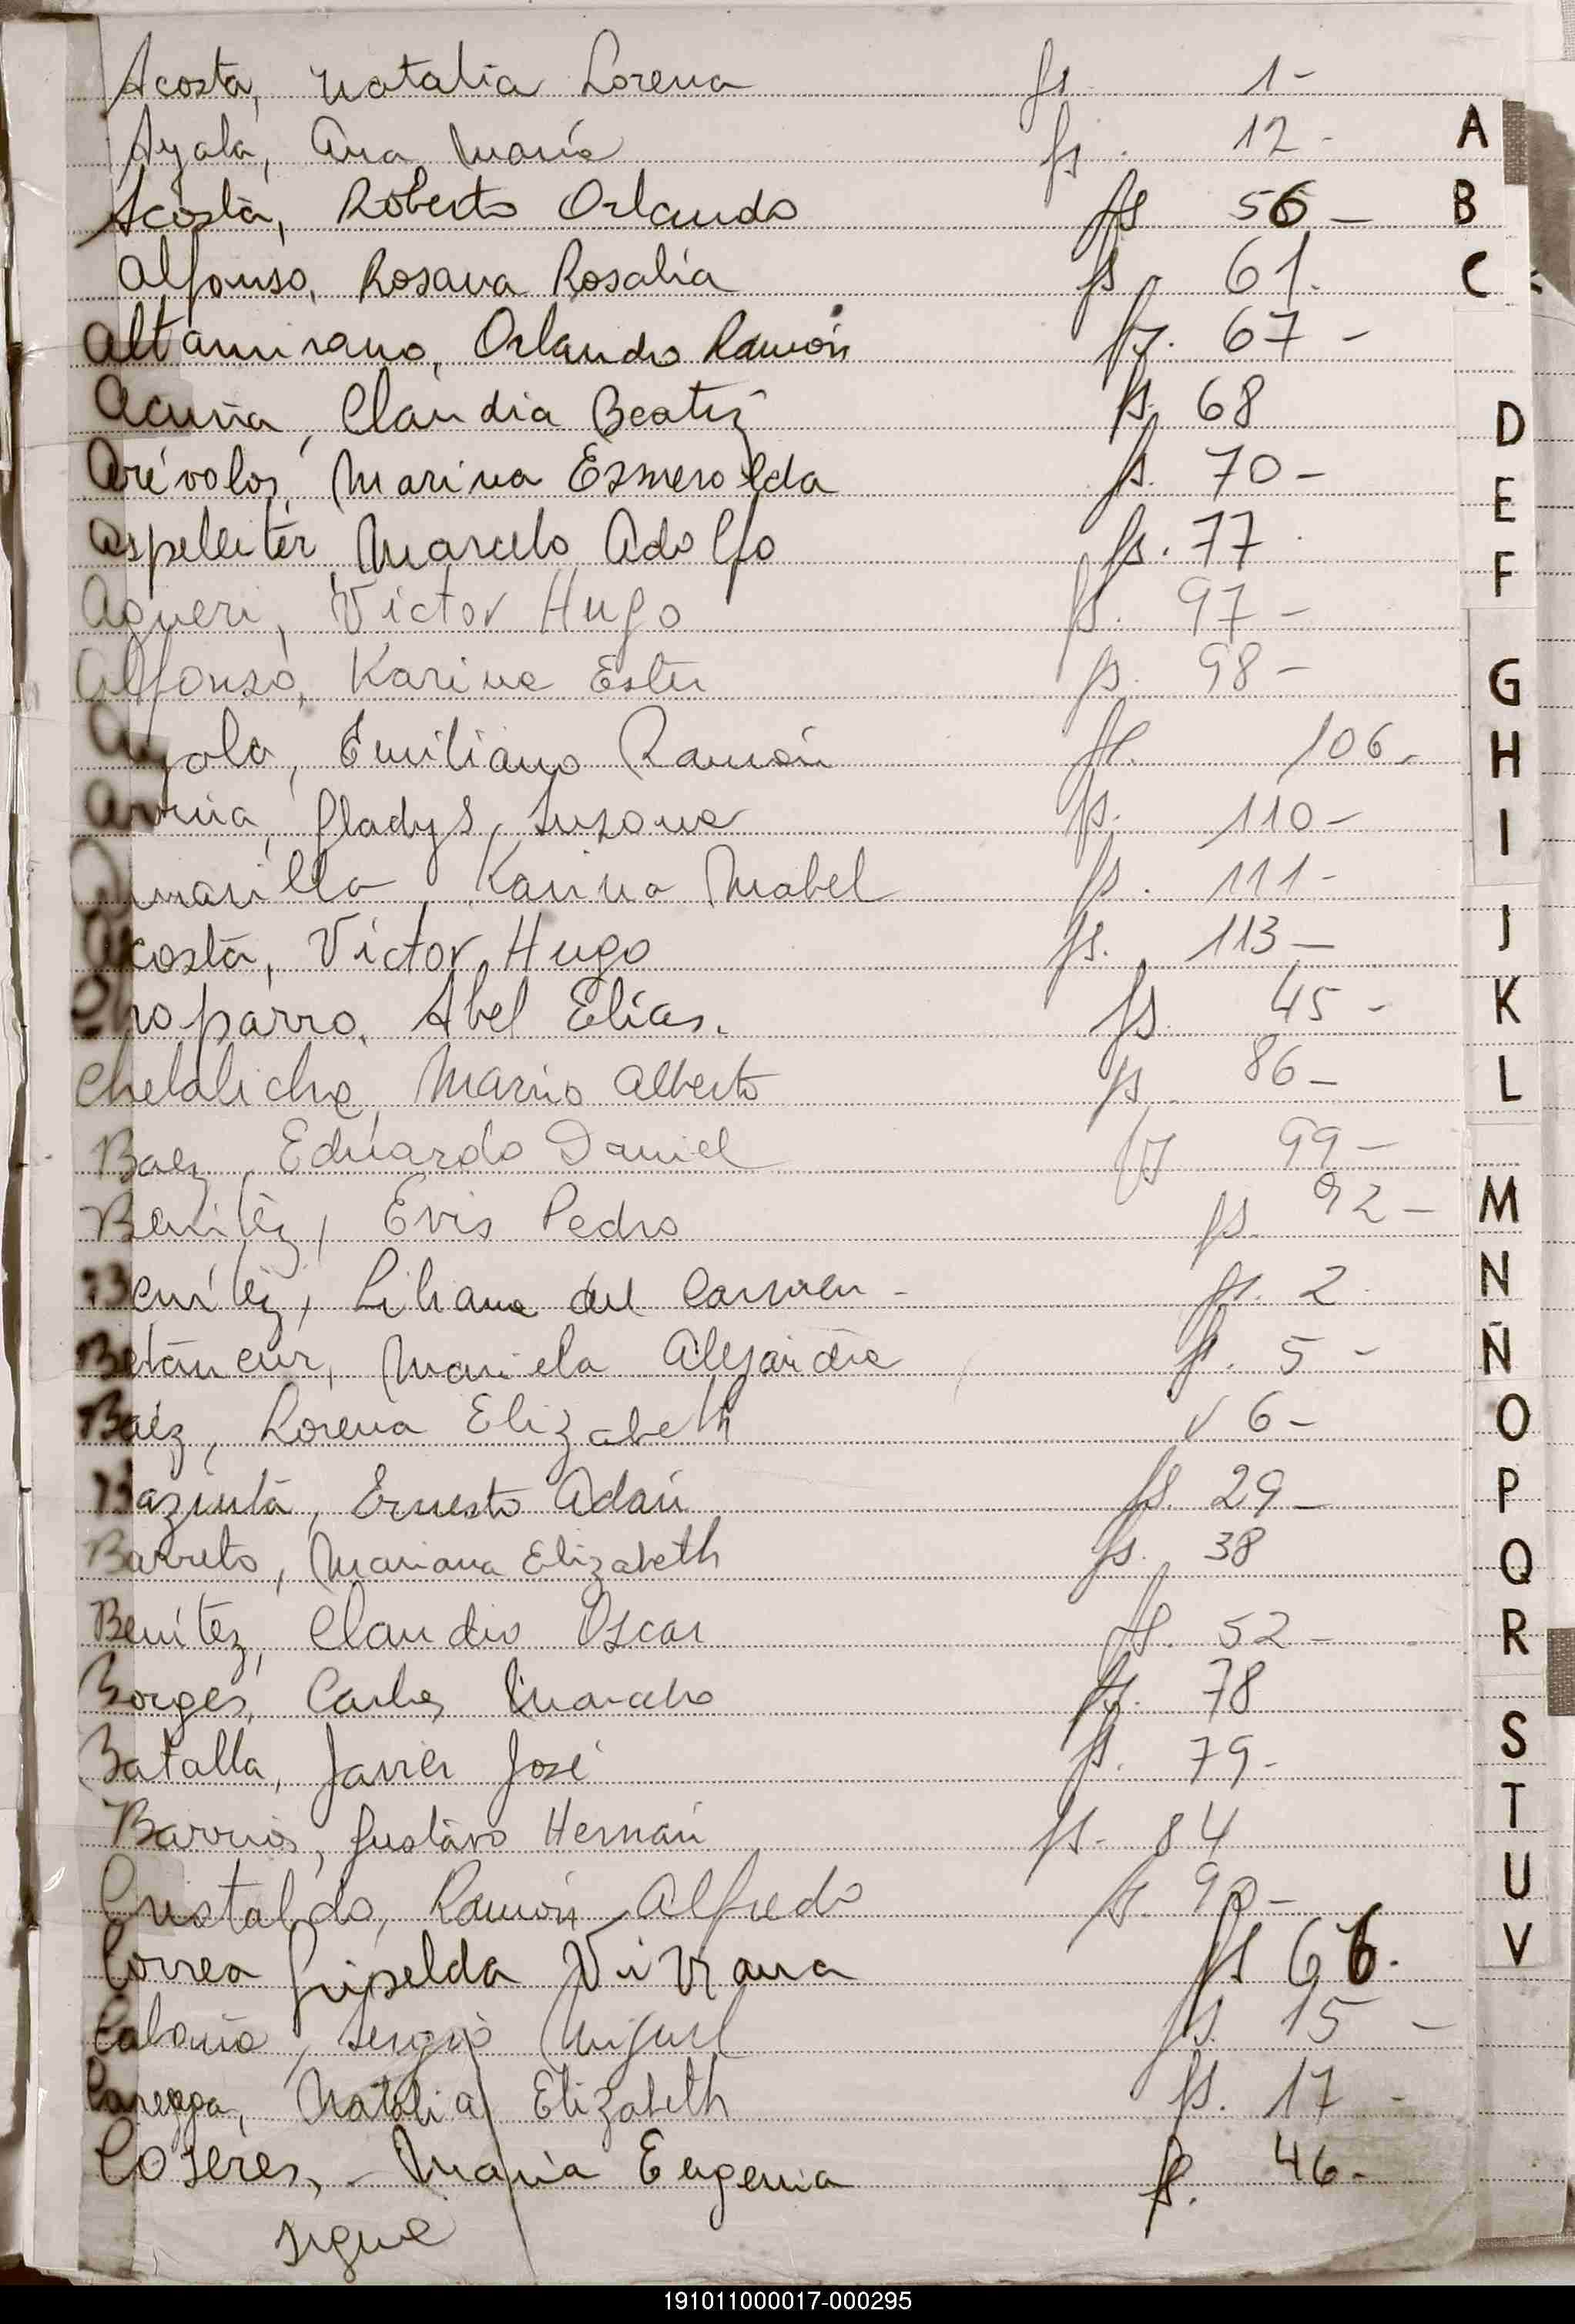 Acosta, Natalia Lorena fs. 1-
Ayala, Ana María fs. 12-
A
Acosta, Roberto Orlando fs 56-
B
Alfonso, Rosana Rosalia fs. 61.
C
Altamirano, Orlando Ramón fs. 67-
Acuña, Claudia Beatriz fs. 68
D
Arévalos, Marina Esmeralda fs. 70-
E
Aspeleiter, Marcelo Adolfo fs. 77
F
Agueri, Victor Hugo fs. 97-
Alfonso, Karina Ester fs. 98-
G
Ayala, Emiliano Ramón fs. 106.
H
Gladys Susana fs. 110-
I
Amarilla, Karina Mabel fs. 111-
Acosta, Victor Hugo fs. 113-
J
Chaparro, Abel Elías. fs. 45-
K
Chelaliche, Mario Alberto fs 86-
L
Baez, Eduardo Daniel fs 99-
Benítez, Evis Pedro fs. 92-
M
Benítez, Liliana del Carmen- fs. 2
N
Betancur, Mariela Alejandra fs. 5-
Ñ
Baez, Lorena Elizabeth 6-
O
Bazintá, Ernesto Adán fs. 29-
P
Barreto, Mariana Elizabeth fs. 38
Q
Benítez, Claudio Oscar fs. 52-
R
Borges, Carlos Marcelo fs. 78
Batalla, Javier José fs. 79-
S
Barrios, Gustavo Hernán fs. 84
T
Cristaldo, Ramón Alfredo fs. 90-
U
Correa Griselda Viviana fs 66.
V
Sergio Miguel fs. 15-
Natalia Elizabeth fs. 17-
Coseres, - María Eugenia fs. 46-
sigue
191011000017-000295